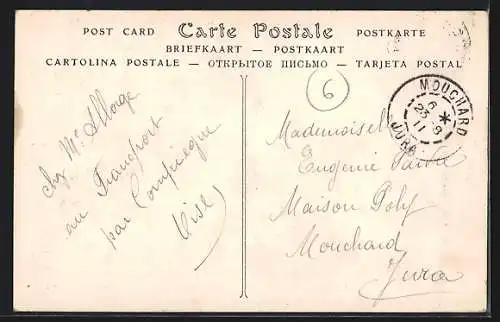 POST CARD Carte Postale POSTKARTE
BRIEFKAART — POSTKAART
CARTOLINA POSTALE — ОТКРЫТОЕ ПИСЬМО — TARJETA POSTAL
6
MOUCHARD
6
23 -8
11
JURA
chez Mr Allorge
au Transport
par Compiègne
Oise
Mademoiselle
Eugenie
Maison Poly
Mouchard
Jura